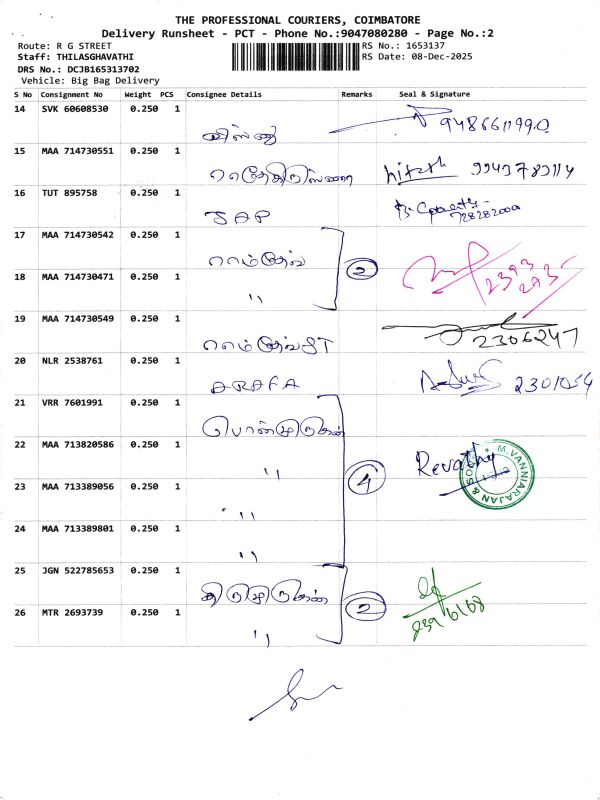 THE PROFESSIONAL COURIERS, COIMBATORE
Delivery Runsheet - PCT - Phone No.:9047080280 - Page No.:2
Route: R G STREET
RS No.: 1653137
Staff: THILASGHAVATHI
RS Date: 08-Dec-2025
DRS No.: DCJB165313702
Vehicle: Big Bag Delivery
S No Consignment No Weight PCS Consignee Details Remarks Seal & Signature
14 SVK 60608530 0.250 1
15 MAA 714730551 0.250 1
hitesh
16 TUT 895758 0.250 1
JAP
17 MAA 714730542 0.250 1
2
18 MAA 714730471 0.250 1
"
19 MAA 714730549 0.250 1
2306247
20 NLR 2538761 0.250 1
ARAFA 2301054
21 VRR 7601991 0.250 1
பொன்முருகன்
22 MAA 713820586 0.250 1
" 4 Revathy
M. VANNIARAJAN & SONS
23 MAA 713389056 0.250 1
"
24 MAA 713389801 0.250 1
"
25 JGN 522785653 0.250 1
திருமுருகன்
2
26 MTR 2693739 0.250 1
"